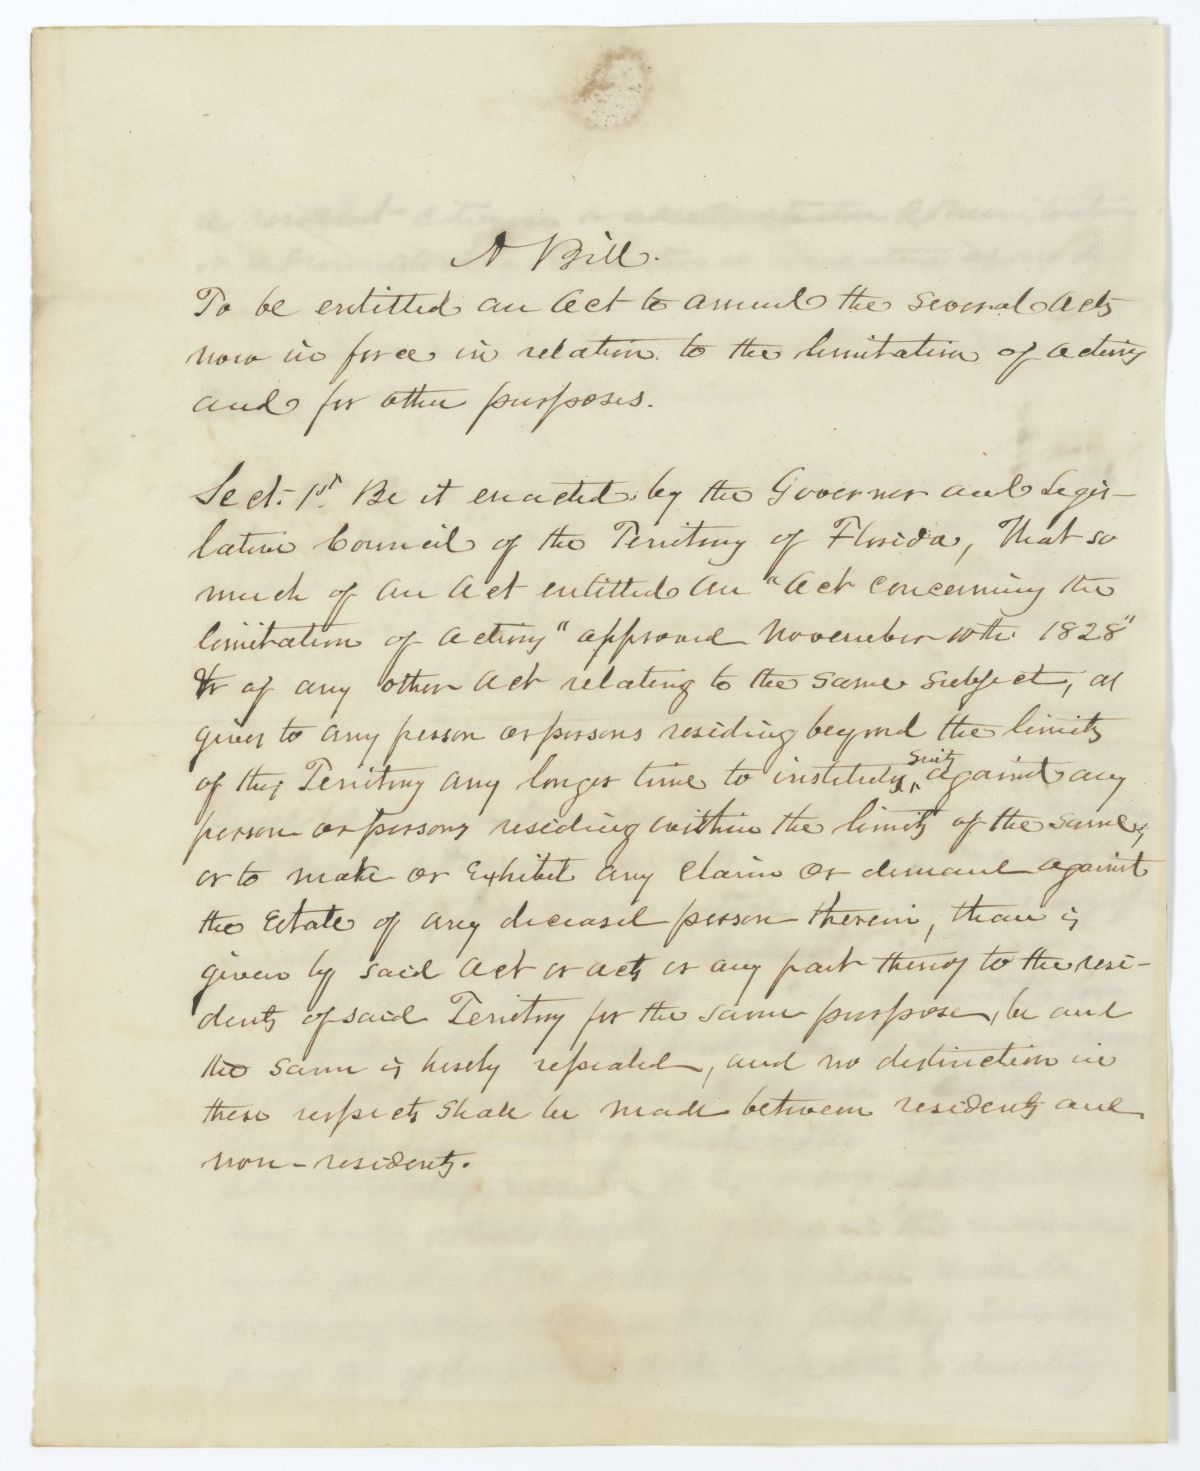 A Bill.
To be entitled an Act to amend the several Acts
now in force in relation to the limitation of actions
and for other purposes.
Sect. 1st. Be it enacted by the Governor and Legis-
lative Council of the Territory of Florida, That so
much of an Act entitled an "Act concerning the
limitation of actions" approved November 10th. 1828"
or of any other Act relating to the same subject, as
gives to any person or persons residing beyond the limits
of this Territory any longer time to institute suits against any
person or persons residing within the limits of the same,
or to make or exhibit any claim or demand against
the Estate of any deceased person therein, than is
given by said Act or acts or any part thereof to the resi-
dents of said Territory for the same purpose, be and
the same is hereby repealed, and no distinction in
these respects shall be made between residents and
non-residents.